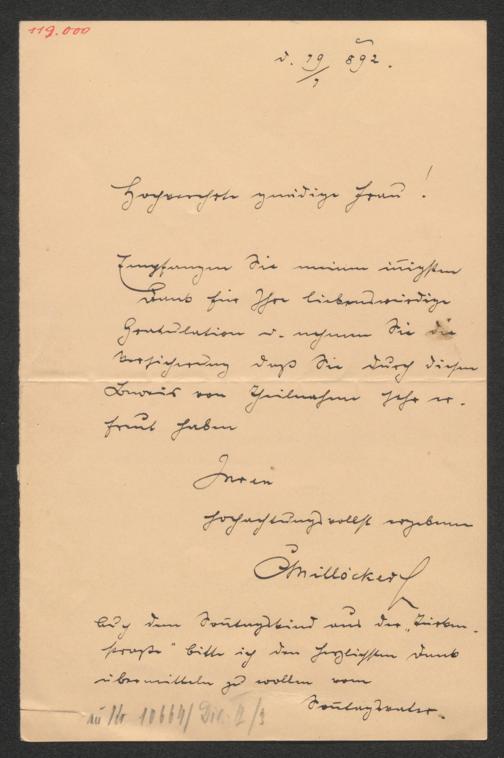 119.000
d. 19/1 892.
Hochverehrte gnädige Frau!
Empfangen Sie meinen innigsten
Dank für Ihre liebenswürdige
Gratulation u. nehmen Sie die
Versicherung daß Sie durch diesen
Beweis von Theilnahme sehr er-
freut haben
Ihren
hochachtungsvollst ergebenen
CMillöcker
Auch dem Sontagskind aus der „Türken-
straße" bitte ich den herzlichsten Dank
übermitteln zu wollen vom
Sontagsvater.
zu Nr 10664/ Div. II/3